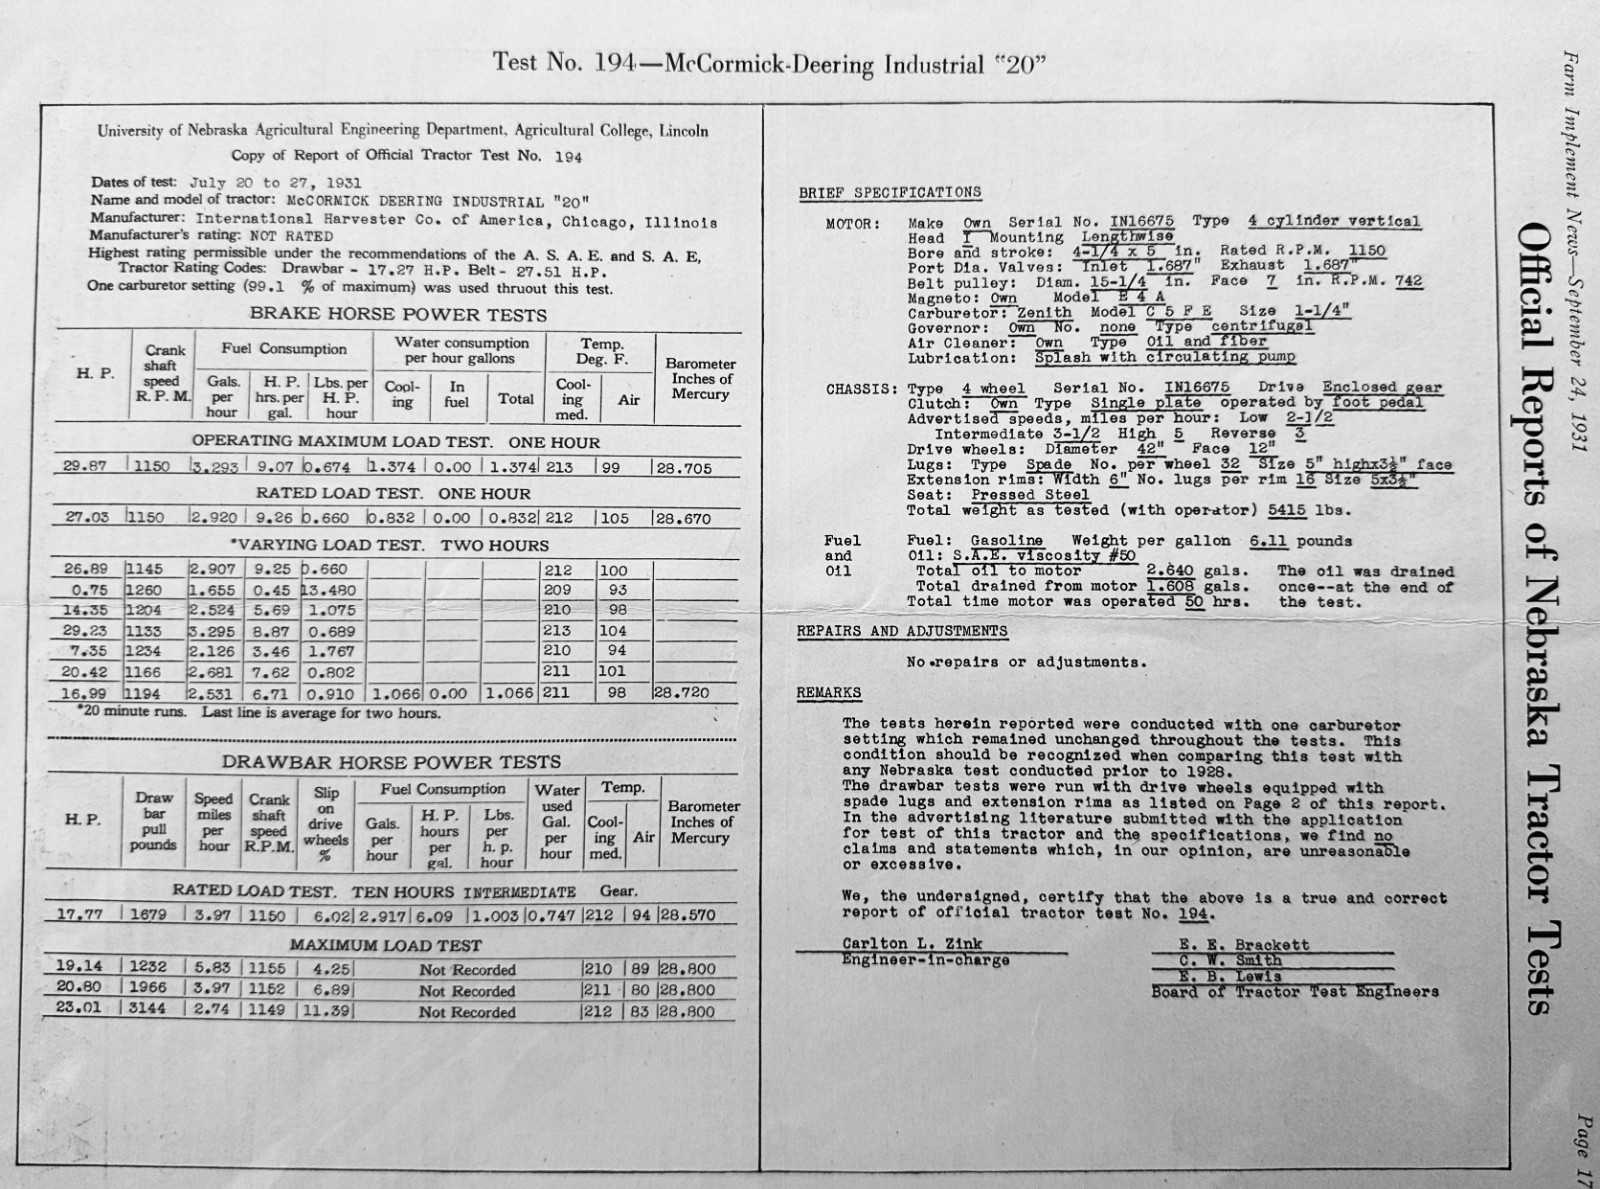 Test No. 194—McCormick-Deering Industrial "20"
University of Nebraska Agricultural Engineering Department, Agricultural College, Lincoln
Copy of Report of Official Tractor Test No. 194
Dates of test: July 20 to 27, 1931
Name and model of tractor: McCORMICK DEERING INDUSTRIAL "20"
Manufacturer: International Harvester Co. of America, Chicago, Illinois
Manufacturer's rating: NOT RATED
Highest rating permissible under the recommendations of the A. S. A. E. and S. A. E,
Tractor Rating Codes: Drawbar - 17.27 H.P. Belt - 27.51 H.P.
One carburetor setting (99.1 % of maximum) was used thruout this test.
BRAKE HORSE POWER TESTS
H. P. Crank shaft speed R. P. M. Fuel Consumption Gals. per hour H. P. hrs. per gal. Lbs. per H. P. hour Water consumption per hour gallons Cool-ing In fuel Total Temp. Deg. F. Cool-ing med. Air Barometer Inches of Mercury
OPERATING MAXIMUM LOAD TEST. ONE HOUR
29.87 1150 3.293 9.07 0.674 1.374 0.00 1.374 213 99 28.705
RATED LOAD TEST. ONE HOUR
27.03 1150 2.920 9.26 0.660 0.832 0.00 0.832 212 105 28.670
*VARYING LOAD TEST. TWO HOURS
26.89 1145 2.907 9.25 0.660 212 100
0.75 1260 1.655 0.45 13.480 209 93
14.35 1204 2.524 5.69 1.075 210 98
29.23 1133 3.295 8.87 0.689 213 104
7.35 1234 2.126 3.46 1.767 210 94
20.42 1166 2.681 7.62 0.802 211 101
16.99 1194 2.531 6.71 0.910 1.066 0.00 1.066 211 98 28.720
*20 minute runs. Last line is average for two hours.
DRAWBAR HORSE POWER TESTS
H. P. Draw bar pull pounds Speed miles per hour Crank shaft speed R.P.M. Slip on drive wheels % Fuel Consumption Gals. per hour H. P. hours per gal. Lbs. per h. p. hour Water used Gal. per hour Temp. Cool-ing med. Air Barometer Inches of Mercury
RATED LOAD TEST. TEN HOURS INTERMEDIATE Gear.
17.77 1679 3.97 1150 6.02 2.917 6.09 1.003 0.747 212 94 28.570
MAXIMUM LOAD TEST
19.14 1232 5.83 1155 4.25 Not Recorded 210 89 28.800
20.80 1966 3.97 1152 6.89 Not Recorded 211 80 28.800
23.01 3144 2.74 1149 11.39 Not Recorded 212 83 28.800
BRIEF SPECIFICATIONS
MOTOR: Make Own Serial No. IN16675 Type 4 cylinder vertical
Head I Mounting Lengthwise
Bore and stroke: 4-1/4 x 5 in. Rated R.P.M. 1150
Port Dia. Valves: Inlet 1.687" Exhaust 1.687"
Belt pulley: Diam. 15-1/4 in. Face 7 in. R.P.M. 742
Magneto: Own Model E 4 A
Carburetor: Zenith Model C 5 F E Size 1-1/4"
Governor: Own No. none Type centrifugal
Air Cleaner: Own Type Oil and fiber
Lubrication: Splash with circulating pump
CHASSIS: Type 4 wheel Serial No. IN16675 Drive Enclosed gear
Clutch: Own Type Single plate operated by foot pedal
Advertised speeds, miles per hour: Low 2-1/2
Intermediate 3-1/2 High 5 Reverse 3
Drive wheels: Diameter 42" Face 12"
Lugs: Type Spade No. per wheel 32 Size 5" highx3½" face
Extension rims: Width 6" No. lugs per rim 16 Size 5x3½"
Seat: Pressed Steel
Total weight as tested (with operator) 5415 lbs.
Fuel Fuel: Gasoline Weight per gallon 6.11 pounds
and Oil: S.A.E. viscosity #50
Oil Total oil to motor 2.640 gals. The oil was drained
Total drained from motor 1.608 gals. once--at the end of
Total time motor was operated 50 hrs. the test.
REPAIRS AND ADJUSTMENTS
No repairs or adjustments.
REMARKS
The tests herein reported were conducted with one carburetor
setting which remained unchanged throughout the tests. This
condition should be recognized when comparing this test with
any Nebraska test conducted prior to 1928.
The drawbar tests were run with drive wheels equipped with
spade lugs and extension rims as listed on Page 2 of this report.
In the advertising literature submitted with the application
for test of this tractor and the specifications, we find no
claims and statements which, in our opinion, are unreasonable
or excessive.
We, the undersigned, certify that the above is a true and correct
report of official tractor test No. 194.
Carlton L. Zink
Engineer-in-charge
E. E. Brackett
C. W. Smith
E. B. Lewis
Board of Tractor Test Engineers
Farm Implement News—September 24, 1931
Official Reports of Nebraska Tractor Tests
Page 17